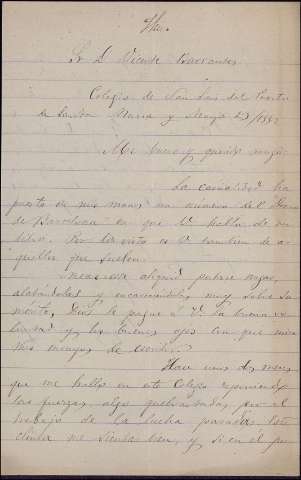 Sr. D. Vicente Barrantes
Colegio de San Luis del Puerto
de Santa María y Mayo 23/1882
Mi bueno y querido amigo:
La casualidad ha
puesto en mis manos un número del
de Barcelona en que V. habla de mi
libro. Por lo visto es V. tambien de a-
quellos que suelen
alabándoles y
mente, Dios le pague a V. la buena vo-
luntad y los buenos ojos con que mira
mis de escritor.
Hace unos dos meses
que me hallo en este Colegio reponiendo
las fuerzas, algo quebrantadas por el
trabajo de la lucha pasada. Este
clima me sienta bien, y si en el